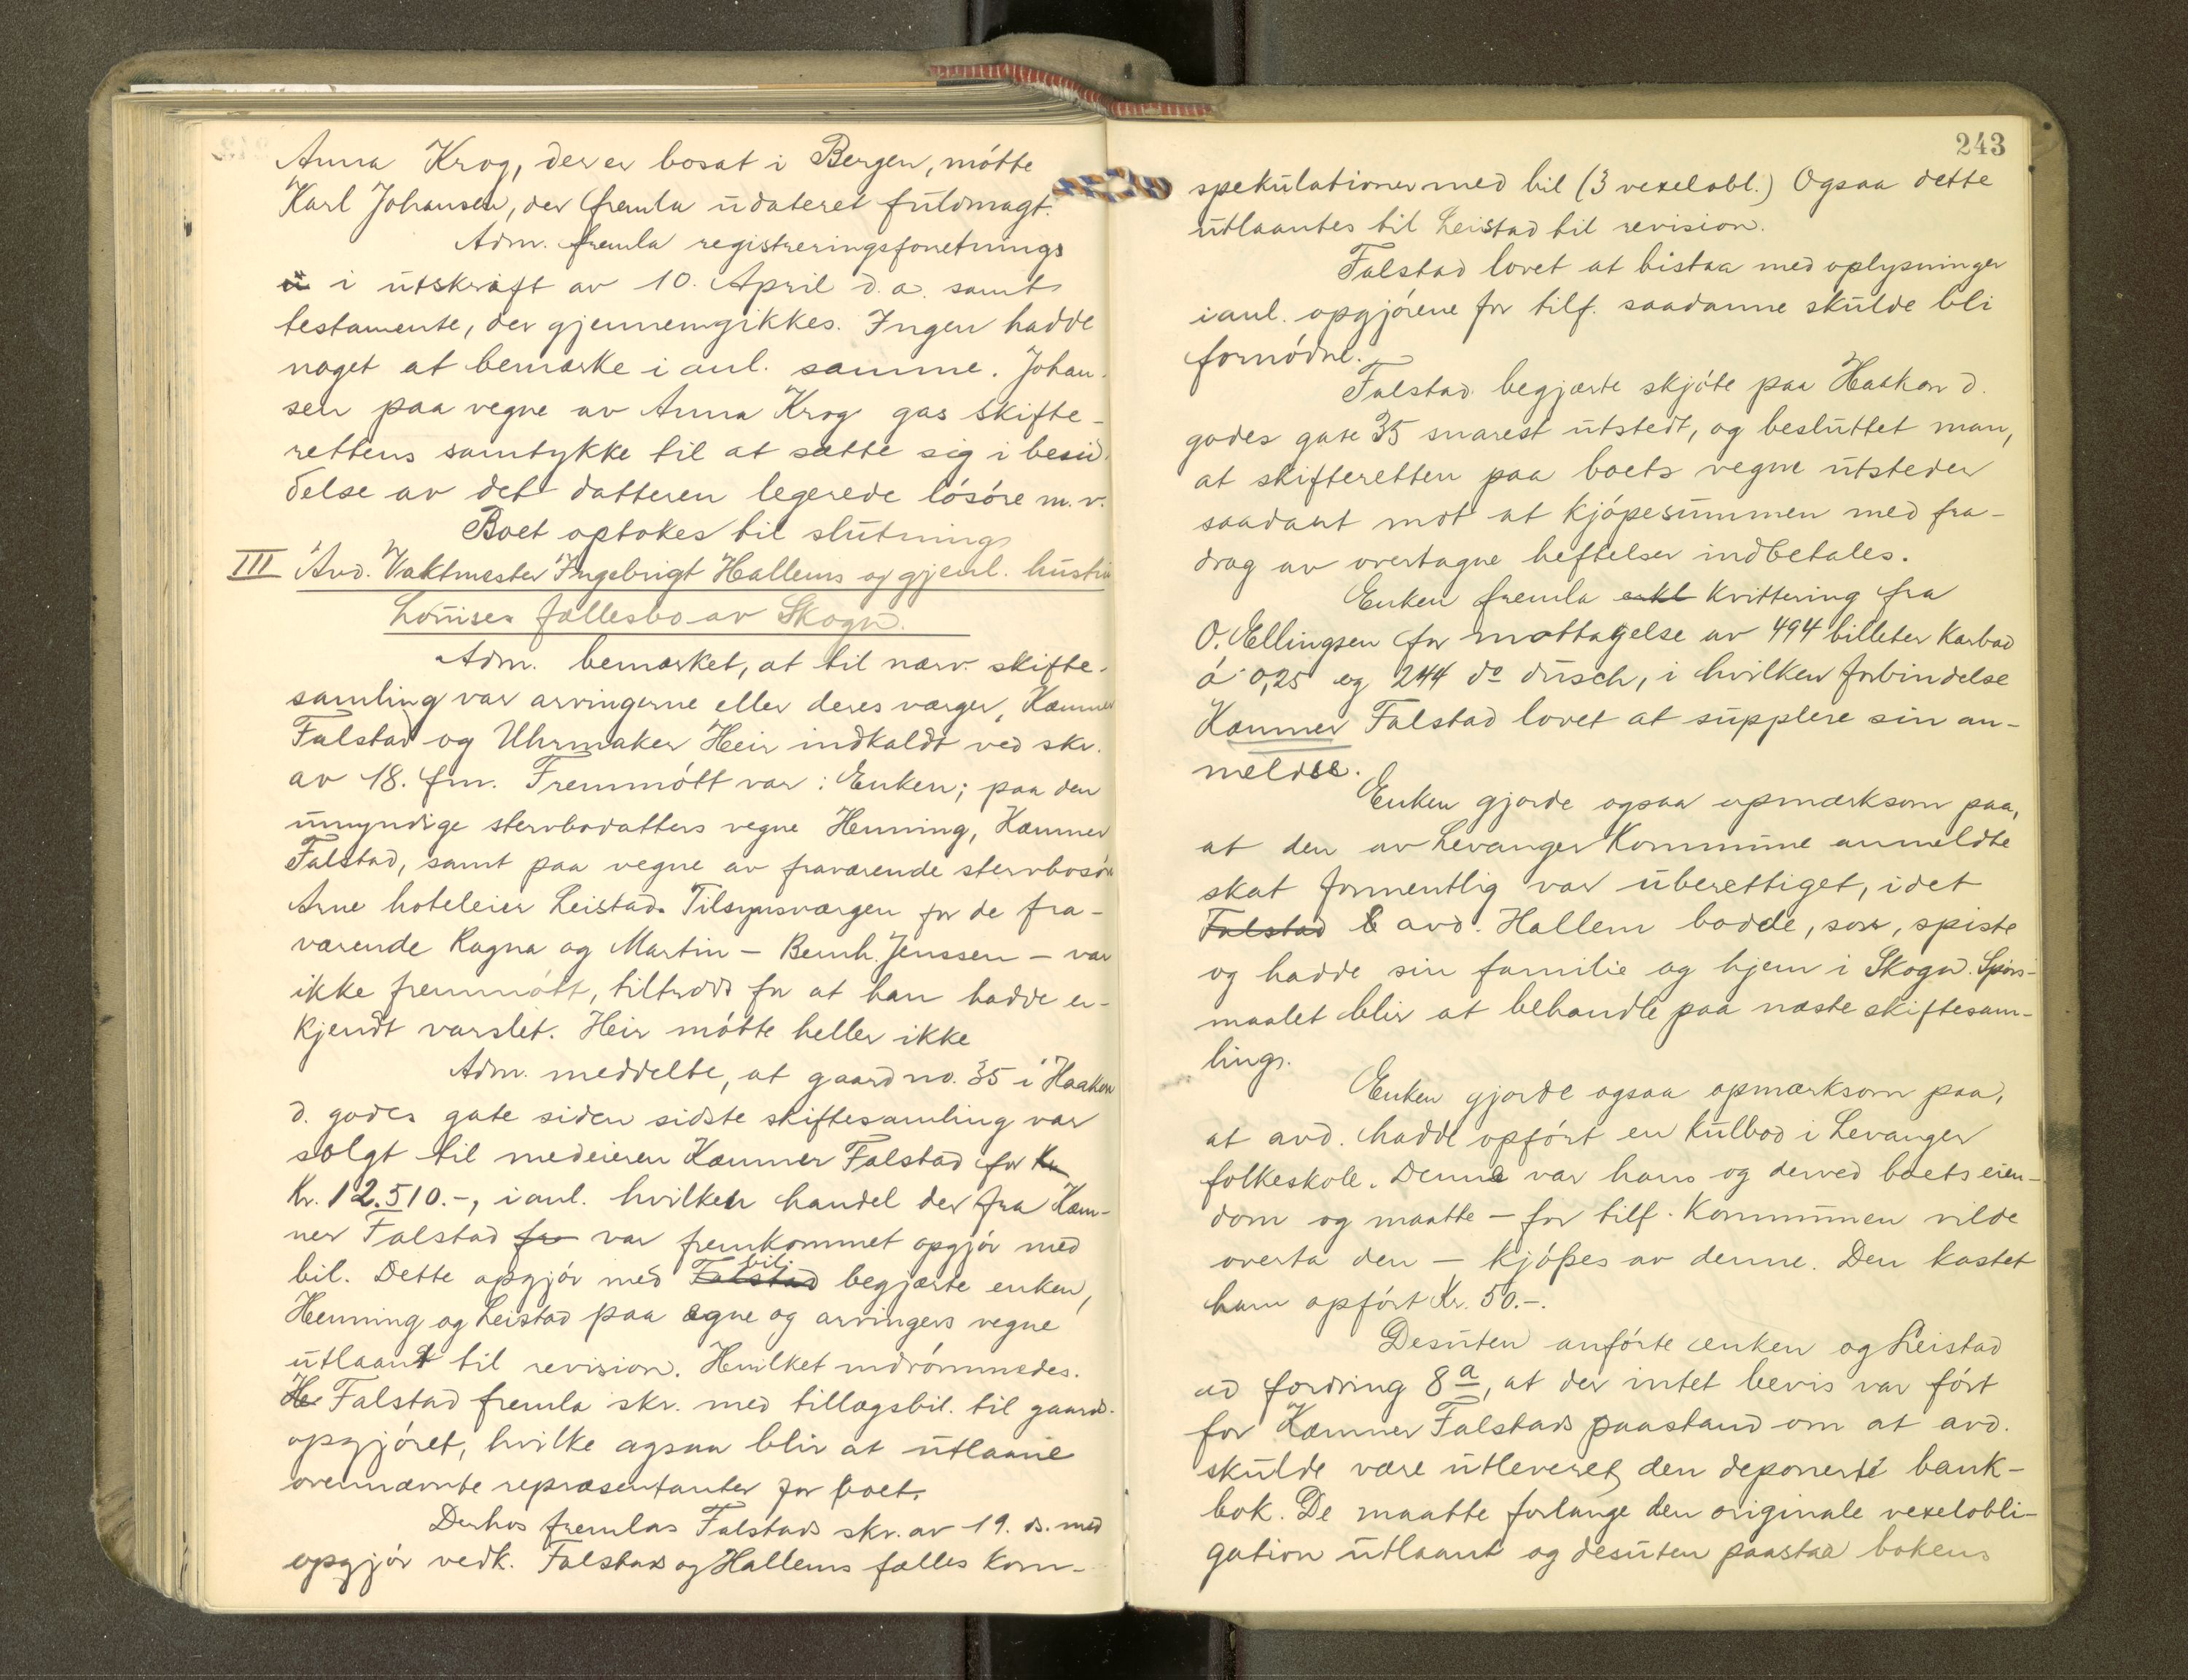 Anna Krog, der er bosat i Bergen, mötte
Karl Johansen, der fremla udateret fuldmagt.
Adm. fremla registreringsforretnings
i utskrift av 10. April d.a. samt
testamente, der gjennemgikkes. Ingen hadde
noget at bemærke i anl. samme. Johan-
sen paa vegne av Anna Krog gas skifte-
rettens samtykke til at sætte sig i besid-
delse av det datteren legerede lösöre m.v.
Boet optokes til slutning
III Avd. Vaktmester Ingebrigt Hallems og gjenl. hustru
Louises fællesbo av Skogn.
Adm. bemærket, at til nærv. skifte-
samling var arvingerne eller deres værger, Kæmner
Falstad og Uhrmaker Heir indkaldt ved skr.
av 18. fm. Fremmött var: Enken; paa den
umyndige stervbodatters vegne Henning, Kæmner
Falstad, samt paa vegne av fraværende stervbosön
Arne hoteleier Leistad. Tilsynsværgen for de fra-
værende Ragna og Martin – Bernh. Jenssen – var
ikke fremmött, tiltrods for at han hadde er-
kjendt varslet. Heir mötte heller ikke
Adm. meddelte, at gaard no. 35 i Haakon
d. godes gate siden sidste skiftesamling var
solgt til medeieren Kæmner Falstad for Kr
Kr. 12.510.-, i anl. hvilken handel der fra Kæm-
ner Falstad fra var fremkommet opgjör med
bil. Dette opgjör med Falstad bil. begjærte enken,
Henning og Leistad paa egne og arvingers vegne
utlaant til revision. Hvilket indrömmedes.
He Falstad fremla skr. med tillægsbil. til gaards-
opgjöret, hvilke ogsaa blir at utlaane
ovennævnte repræsentanter for boet.
Derhos fremlas Falstads skr. av 19. ds. med
opgjör vedk. Falstads og Hallems fælles korn-
243
spekulationer med bil (3 vexelobl.) Ogsaa dette
utlaantes til Leistad til revision.
Falstad lovet at bistaa med oplysninger
i anl. opgjörene for tilf. saadanne skulde bli
fornödne.
Falstad begjærte skjöte paa Haakon d.
godes gate 35 snarest utstedt, og besluttet man,
at skifteretten paa boets vegne utsteder
saadant mot at kjöpesummen med fra-
drag av overtagne heftelser indbetales.
Enken fremla erkl kvittering fra
O. Ellingsen for mottagelse av 494 billeter Karbad
á 0,25 og 244 do dusch, i hvilken forbindelse
Kæmner Falstad lovet at supplere sin an-
meldelse.
Enken gjorde ogsaa opmærksom paa,
at den av Levanger Kommune anmeldte
skat formentlig var uberettiget, idet
Falstad avd. Hallem bodde, sov, spiste
og hadde sin familie og hjem i Skogn. Spörs-
maalet blir at behandle paa næste skiftesam-
ling.
Enken gjorde ogsaa opmærksom paa,
at avd. hadde opfört en kulbod i Levanger
folkeskole. Denne var hans og derved boets eien-
dom og maatte – for tilf. Kommunen vilde
overta den – kjöpes av denne. Den kostet
ham opfört Kr. 50.-.
Desuten anförte enken og Leistad
ad fordring 8a, at der intet bevis var fört
for Kæmner Falstads paastand om at avd.
skulde være utleveret den deponerte bank-
bok. De maatte forlange den originale vexelobli-
gation utlaant og desuten paastaa bokens